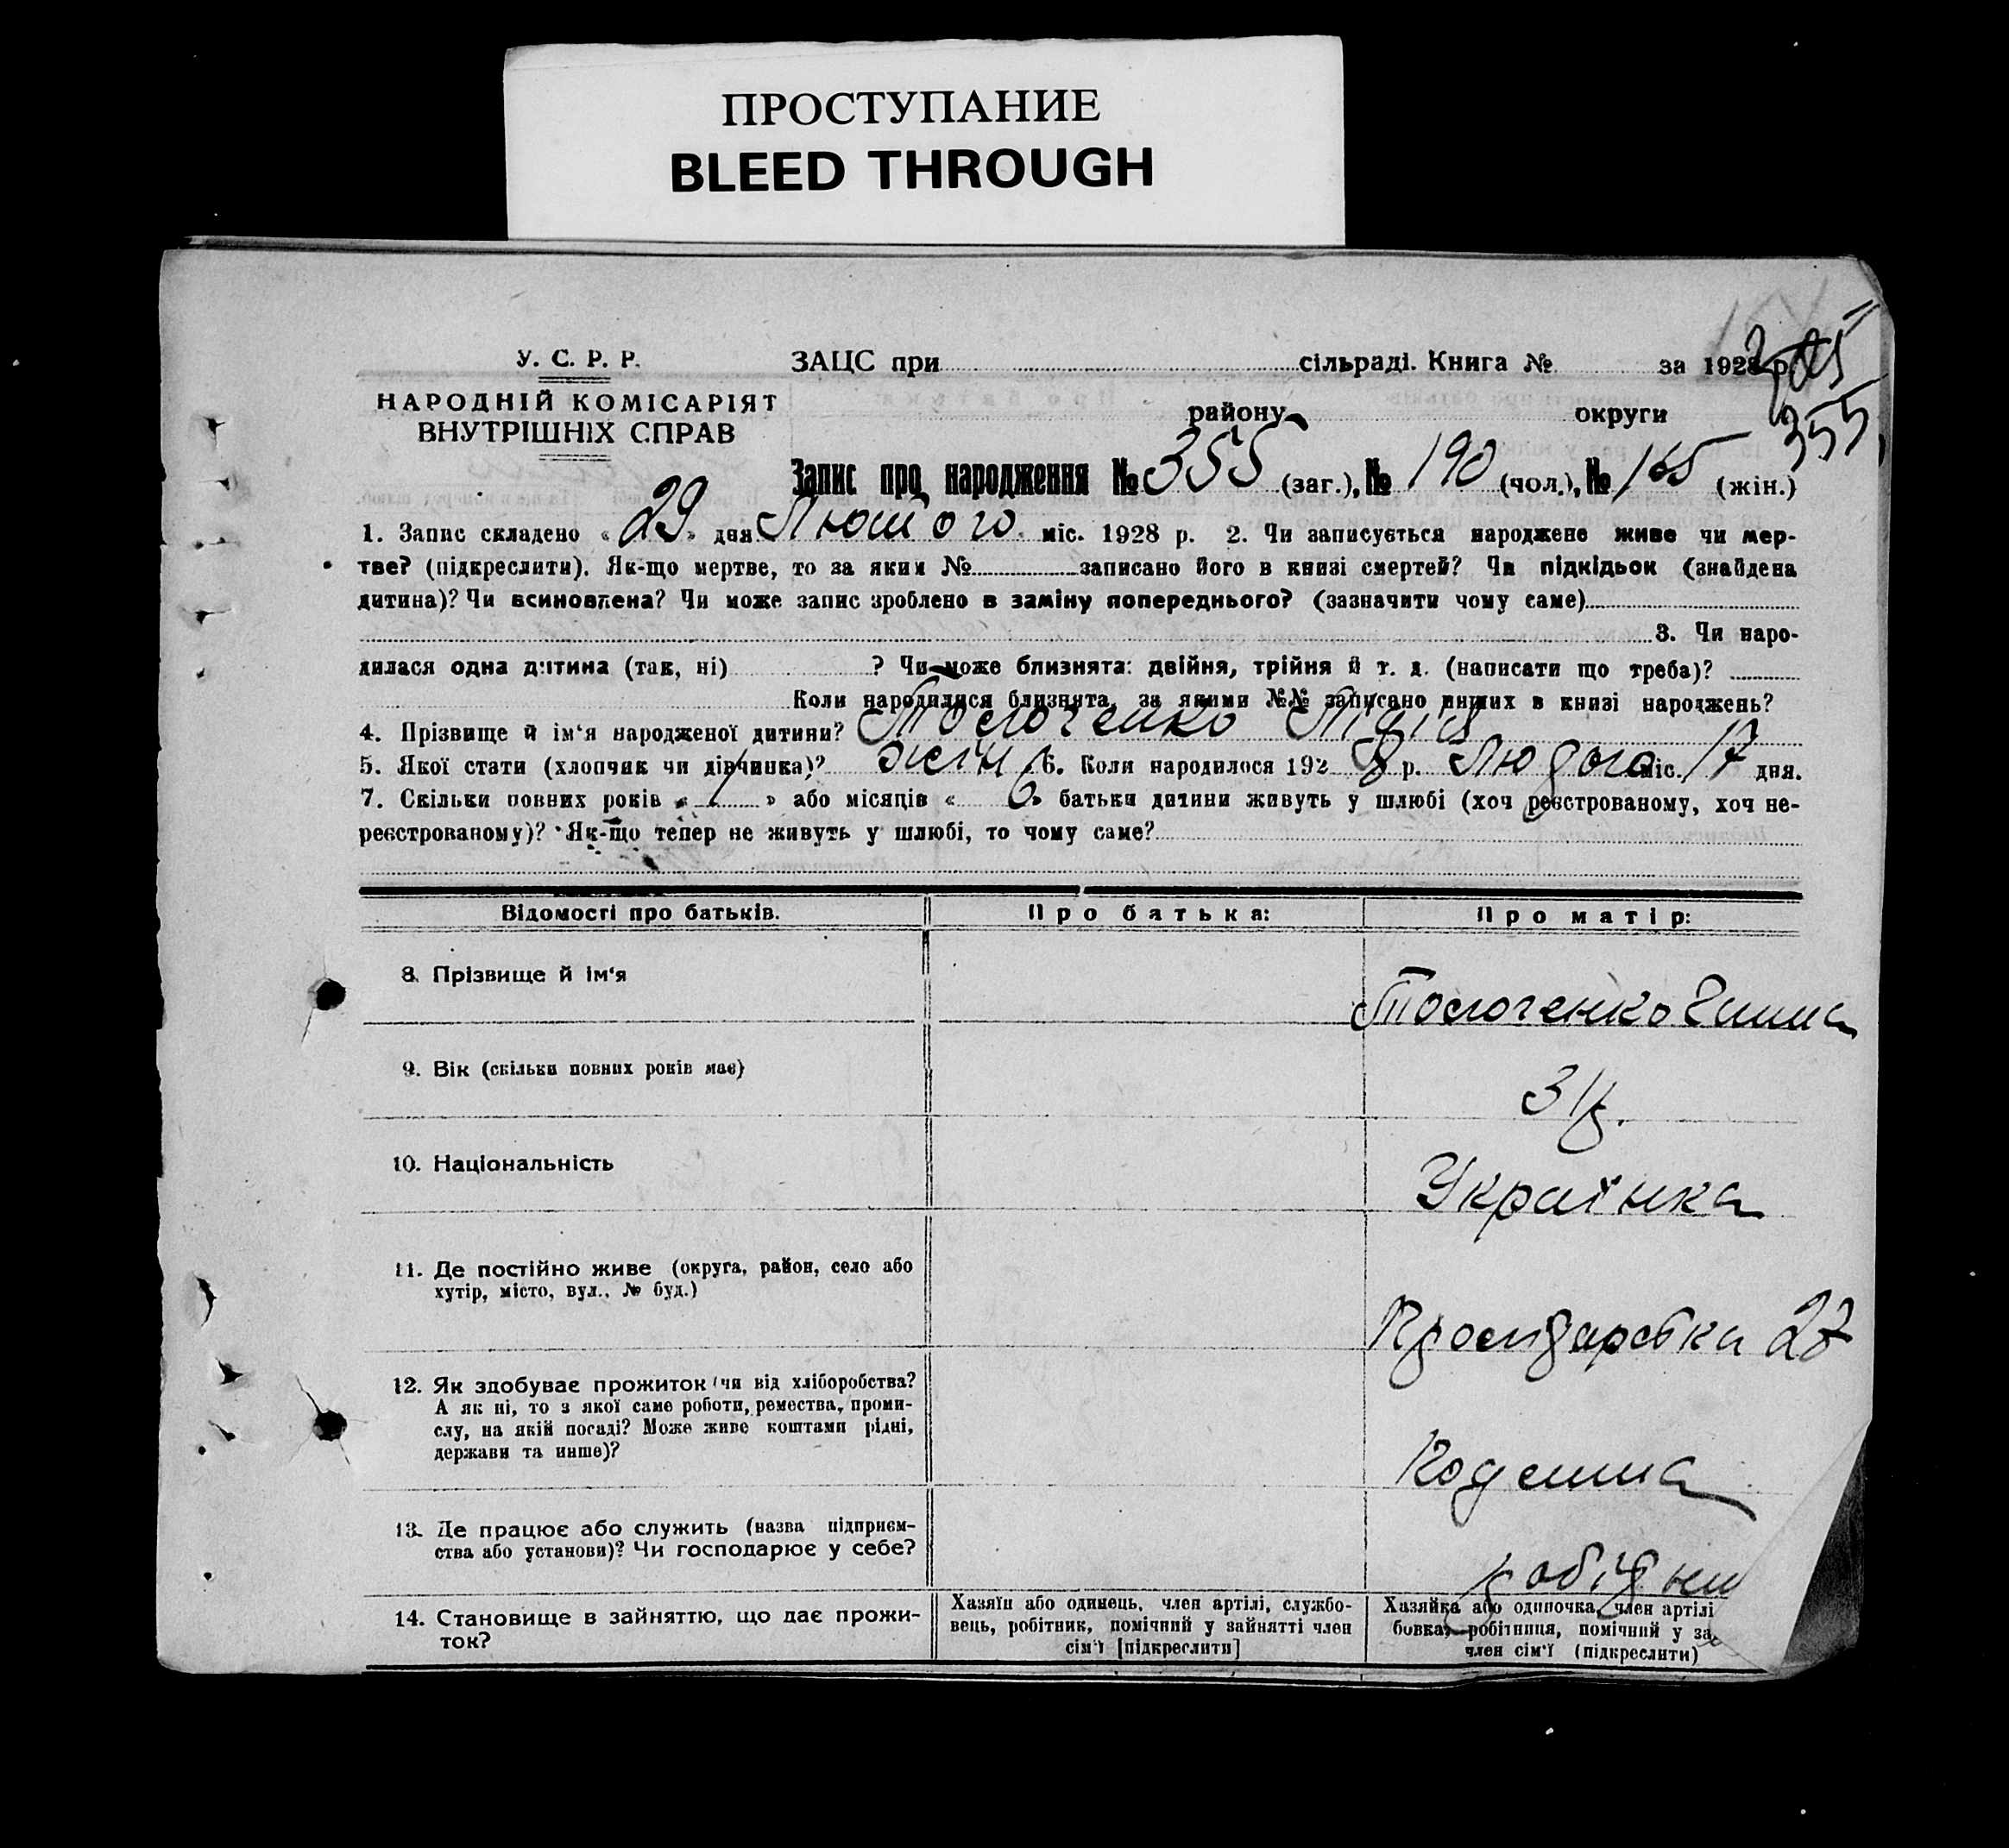 ПРОСТУПАНИЕ
BLEED THROUGH
355
У. С. Р. Р.
ЗАЦС при сільраді. Книга № за 1928 р.
НАРОДНІЙ КОМІСАРІЯТ
ВНУТРІШНІХ СПРАВ
району округи
Запис про народження № 355 (заг.), № 190 (чол.), № 165 (жін.)
1. Запис складено « 29 » дня Лютого міс. 1928 р. 2. Чи записується народжене живе чи мер-
тве? (підкреслити). Як-що мертве, то за яким № записано його в книзі смертей? Чи підкідьок (знайдена
дитина)? Чи всиновлена? Чи може запис зроблено в заміну попереднього? (зазначити чому саме)
3. Чи наро-
дилася одна дитина (так, ні) ? Чи може близнята: двійня, трійня й т. д. (написати що треба)?
Коли народилися близнята, за якими №№ записано инших в книзі народжень?
4. Прізвище й ім‘я народженої дитини? Толоченко
5. Якої стати (хлопчик чи дівчинка)? жін 6. Коли народилося 1928 р. Лютого міс. 17 дня.
7. Скільки повних років « » або місяців « » батьки дитини живуть у шлюбі (хоч реєстрованому, хоч не-
реєстрованому)? Як-що тепер не живуть у шлюбі, то чому саме?
Відомості про батьків. Про батька: Про матір:
8. Прізвище й ім‘я Толоченко
9. Вік (скільки повних років має) 31 р.
10. Національність Українка
11. Де постійно живе (округа, район, село або
хутір, місто, вул., № буд.)
27
12. Як здобуває прожиток (чи від хліборобства?
А як ні, то з якої саме роботи, ремества, проми-
слу, на якій посаді? Може живе коштами рідні,
держави та инше)?
13. Де працює або служить (назва підприєм-
ства або установи)? Чи господарює у себе?
14. Становище в зайняттю, що дає прожи-
ток?
Хазяїн або одинець, член артілі, службо-
вець, робітник, помічний у зайнятті член
сім‘ї [підкреслити]
Хазяйка або одиночка, член артілі
бовка, робітниця, помічний у за
член сім‘ї (підкреслити)